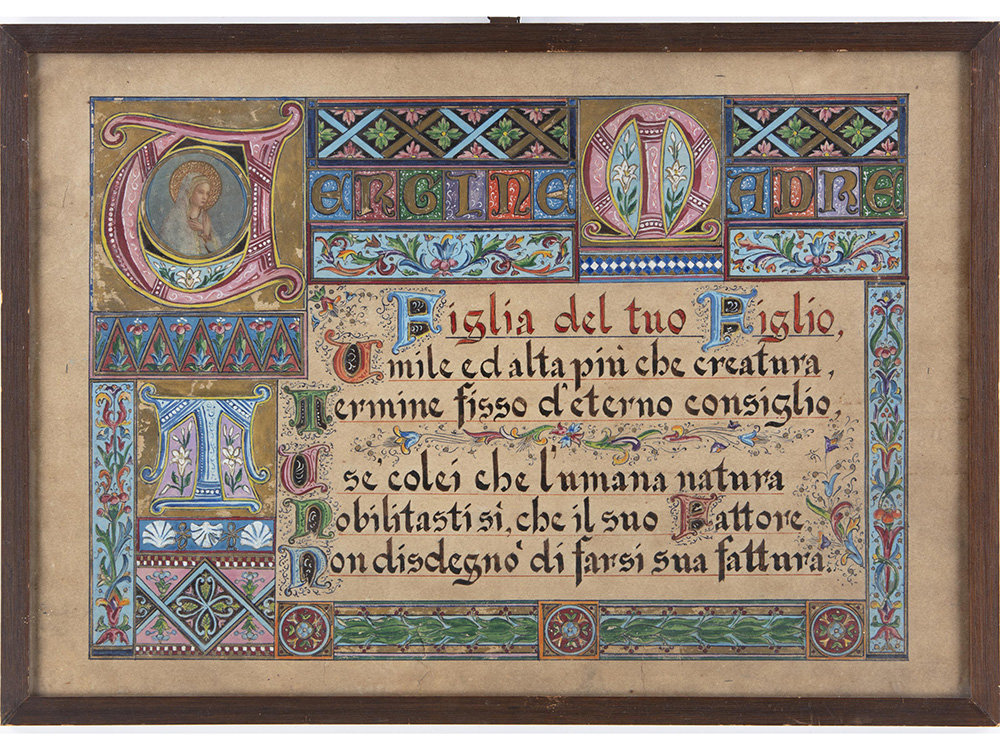 VERGINE MADRE
Figlia del tuo Figlio,
Umile ed alta più che creatura,
Termine fisso d'eterno consiglio,
TU se' colei che l'umana natura
Nobilitasti sì, che il suo Fattore
Non disdegnò di farsi sua fattura.